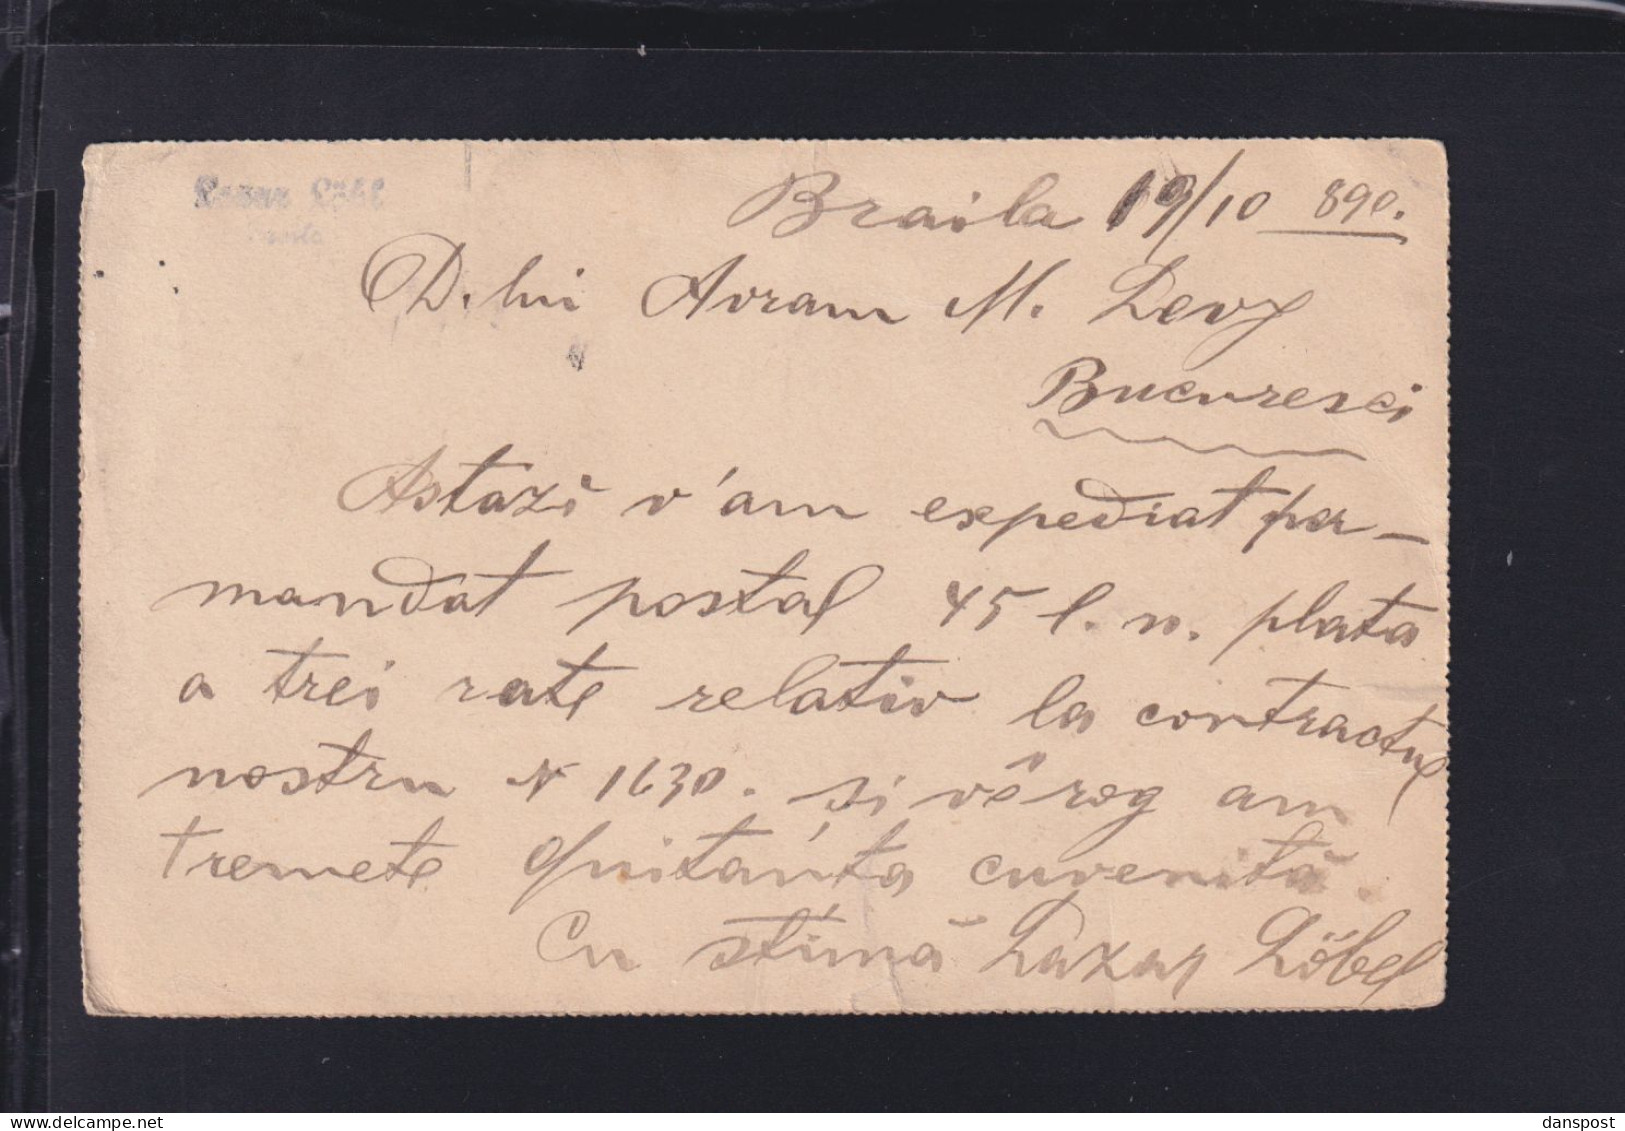 Lazar Löbl
Braila 19/10 890.
D. lui Avram M. Levy
Bucuresci
Astazi v'am expediat per
mandat postal 45 l. n. plata
a trei rate relativ la contractul
nostru N 1630. si vĕ rog am
tremete quitanța cuvenită
Cu stimă Lazar Löbel
danspost